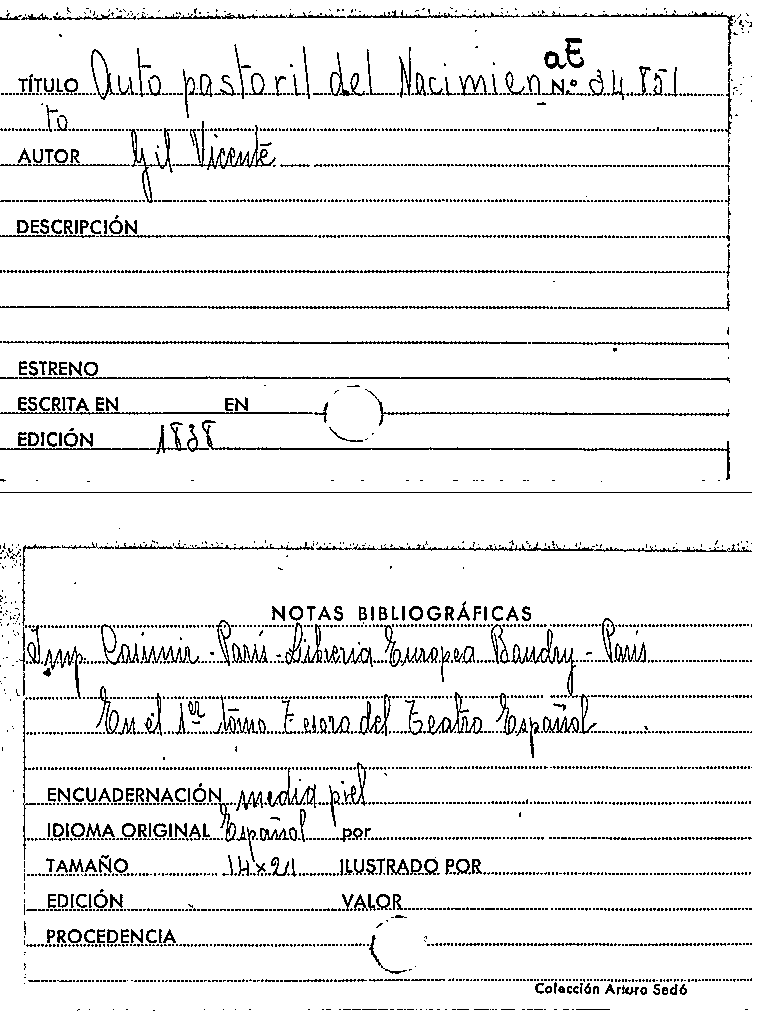 aE
TÍTULO Auto pastoril del Nacimien N.º 34851
to
AUTOR Gil Vicente
DESCRIPCIÓN
ESTRENO
ESCRITA EN EN
EDICIÓN 1838
NOTAS BIBLIOGRÁFICAS
Imp Casimir - París - Libreria Europea Baudry - París
En el 1er tomo Tesoro del Teatro Español
ENCUADERNACIÓN media piel
IDIOMA ORIGINAL Español por
TAMAÑO 14x21 ILUSTRADO POR
EDICIÓN VALOR
PROCEDENCIA
Colección Arturo Sedó